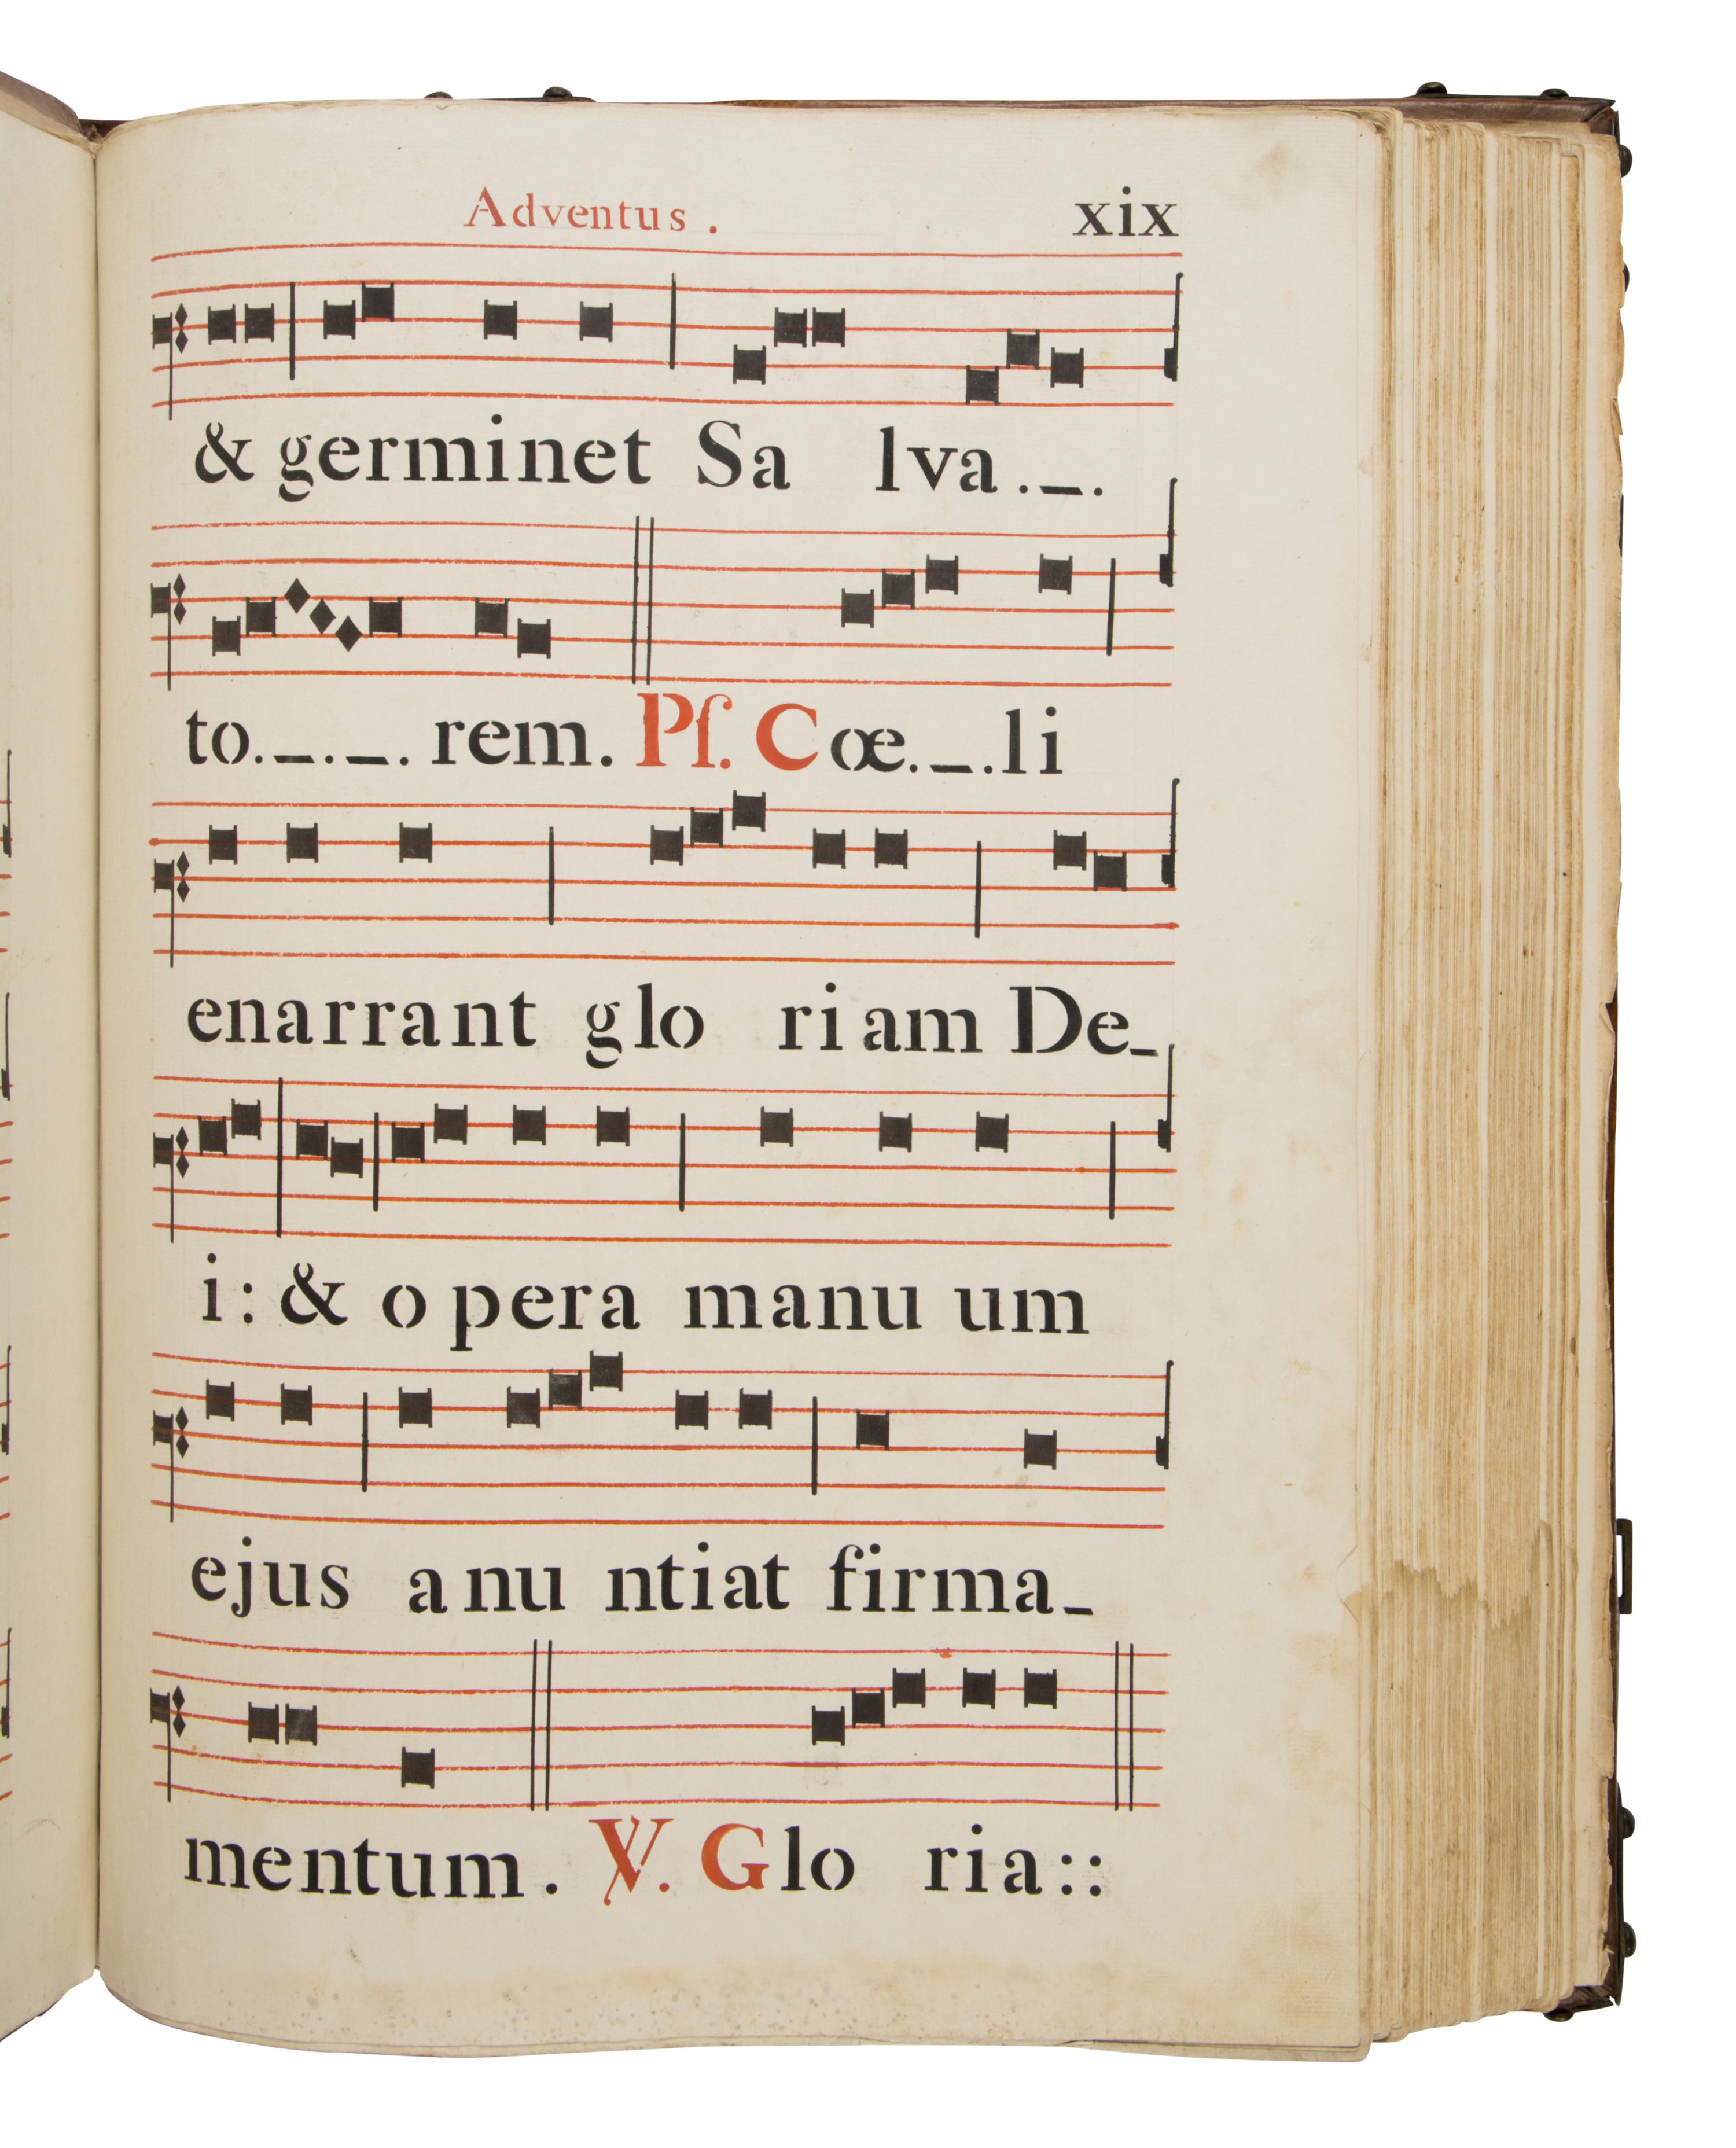 Adventus. xix
& germinet Sa lva._.
to._._. rem. Pſ. Cœ._.li
enarrant glo riam De_
i: & opera manu um
ejus anu ntiat firma_
mentum. ℣. Glo ria::